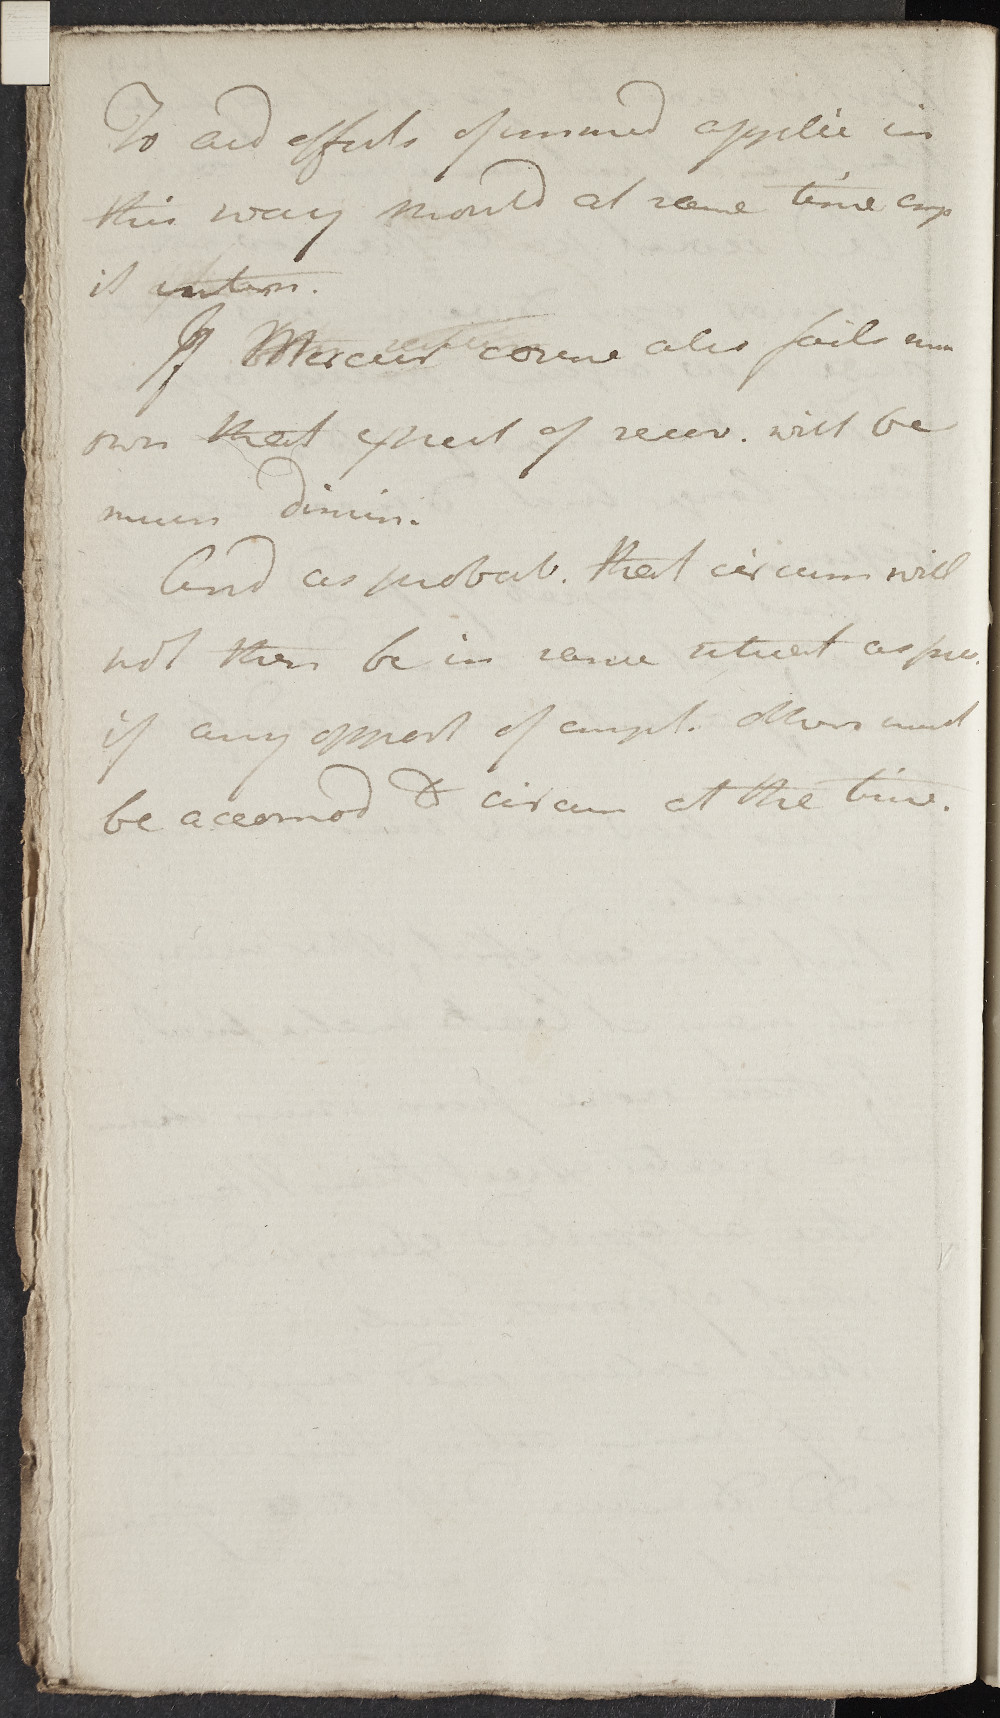 To aid effects of immed applic in
this way should at same time emp
it intern.
If Mercur course also fails mu
own that expect of recov. will be
much dimin.
And as probab. that circum will
not then be in same situat as pres.
if any opport of empl. others must
be accomod to circum at the time.